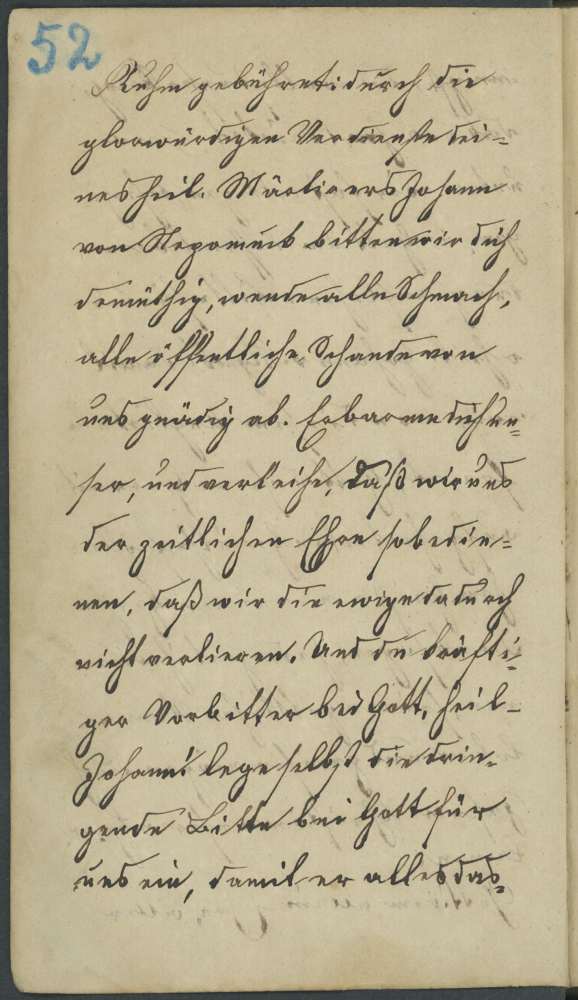 52
Ruhm gebühret: durch die
glorwürdigen Verdienste dei-
nes heil. Märtirers Johann
von Nepomuk bitten wir dich
demüthig, wende alle Schmach,
alle öffentliche Schande von
uns gnädig ab. Erbarme dich un-
ser, und verleihe, daß wir uns
der zeitlichen Ehre so bedie-
nen, daß wir die ewige dadurch
nicht verlieren. Und du kräfti-
ger Vorbitter bei Gott, heil-
Johann! lege selbst die drin-
gende Bitte bei Gott für
uns ein, damit er alles das-